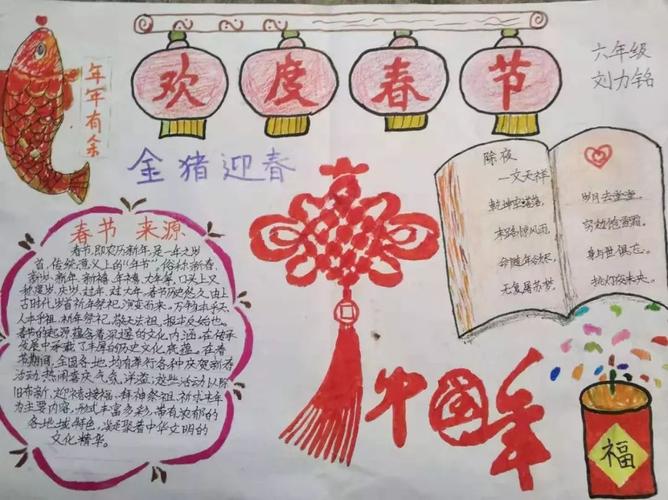 欢度春节
六年级
刘力铭
年年有余
金猪迎春
除夜
—文天祥
乾坤空落落,
末路惊风雨,
命随年欲尽,
无复屠苏梦,
岁月去堂堂,
穷边饱雪霜.
身与世俱忘;
挑灯夜未央.
春节 来源
春节,即农历新年,是一年之岁
首,传统意义上的“年节”。俗称新春、
新岁、新年、新禧、年禧、大年等,口头上又
称度岁、庆岁、过年、过大年。春节历史悠久,由上
古时代岁首祈年祭祀演变而来。万物本乎天、
人本乎祖,祈年祭祀、敬天法祖,报本反始也。
春节的起源蕴含着深邃的文化内涵,在传承
发展中承载了丰厚的历史文化底蕴。在春
节期间,全国各地均有举行各种庆贺新春
活动,热闹喜庆气氛洋溢;这些活动以除
旧布新、迎禧接福、拜神祭祖、祈求丰年
为主要内容,形式丰富多彩,带有浓郁的
各地域特色,凝聚着中华文明的
文化精华。
中国年
福